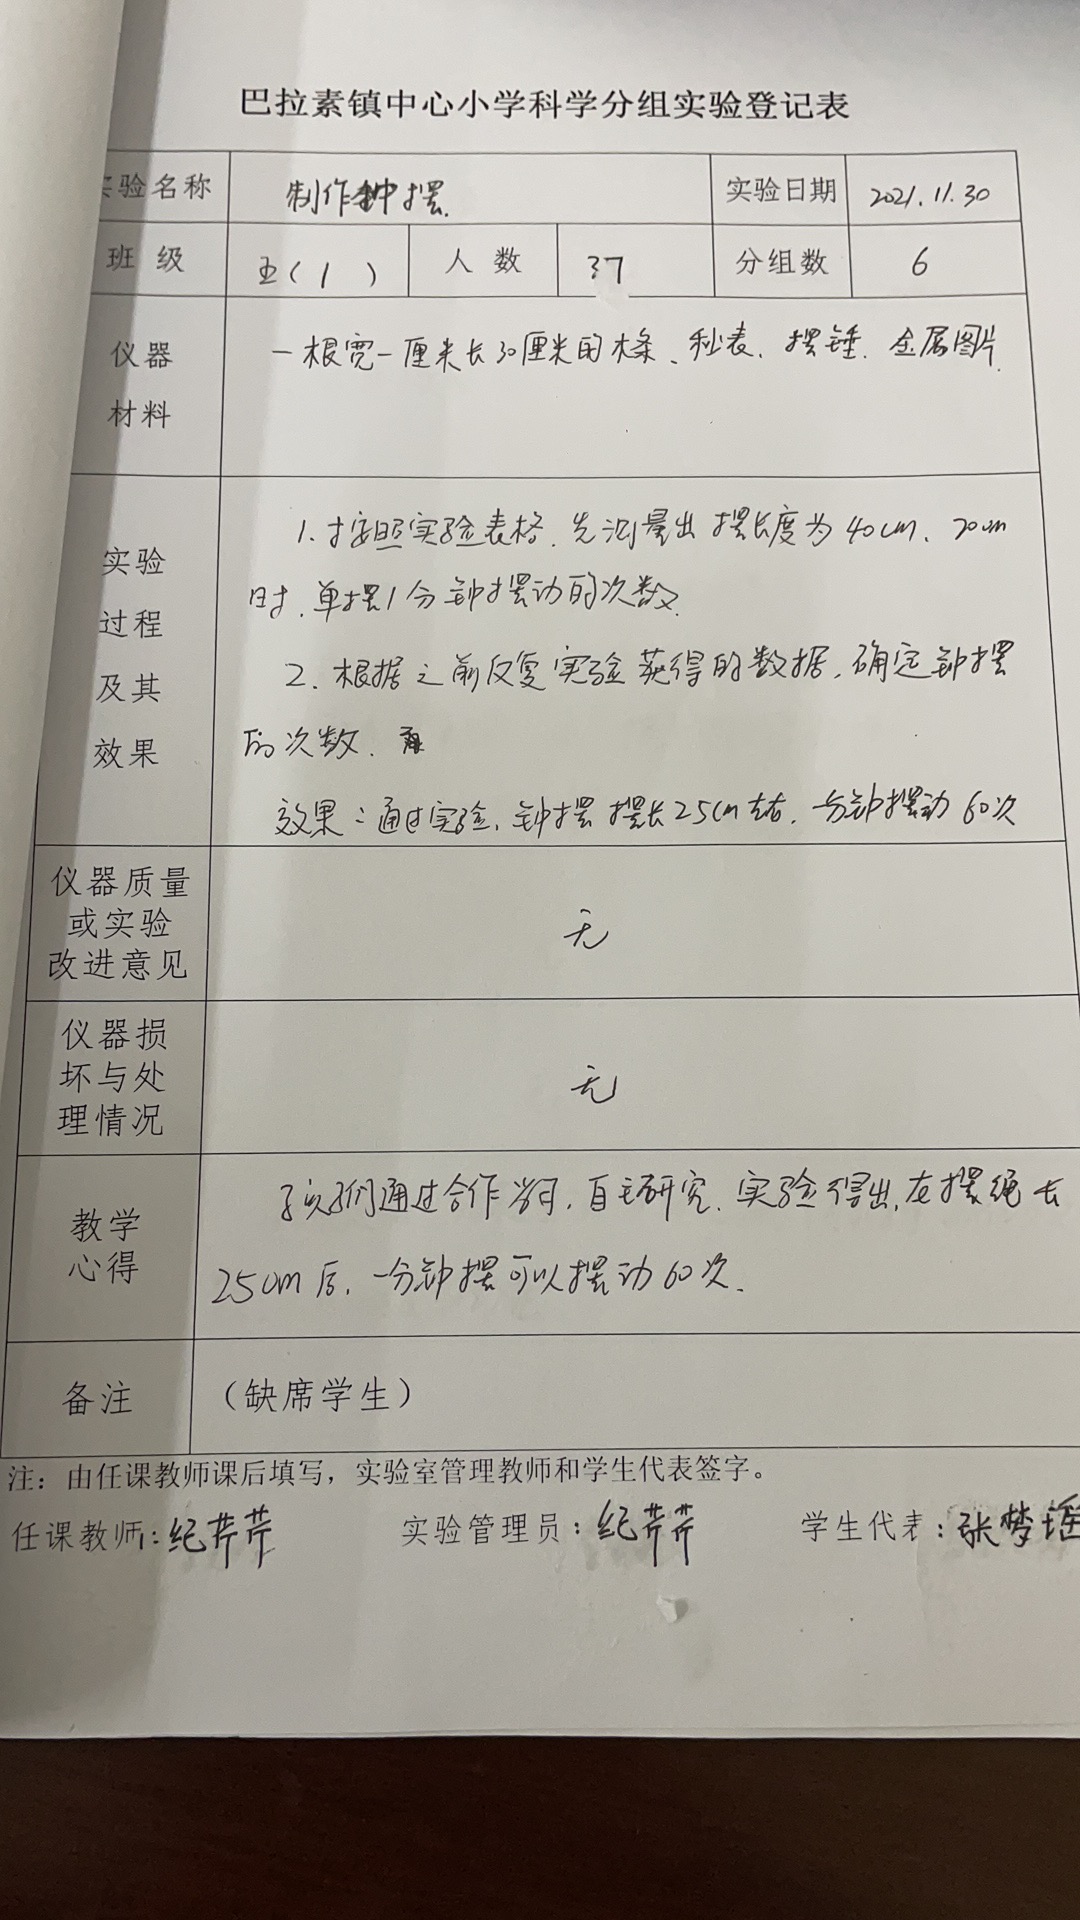 巴拉素镇中心小学科学分组实验登记表
实验名称 制作钟摆. 实验日期 2021.11.30
班 级 五(1) 人 数 37 分组数 6
仪器
材料
一根宽一厘米长30厘米的木条、秒表、摆锤、金属图片.
实验
过程
及其
效果
1.按照实验表格,先测量出摆长度为40cm、20cm
时,单摆1分钟摆动的次数.
2.根据之前反复实验获得的数据,确定钟摆
的次数.
效果:通过实验,钟摆摆长25cm左右,一分钟摆动60次
仪器质量
或实验
改进意见
无
仪器损
坏与处
理情况
无
教学
心得
孩子们通过合作学习,自主研究.实验得出,在摆绳长
25cm后,一分钟摆可以摆动60次.
备注
(缺席学生)
注:由任课教师课后填写,实验室管理教师和学生代表签字。
任课教师:纪芹芹 实验管理员:纪芹芹 学生代表:张梦瑶